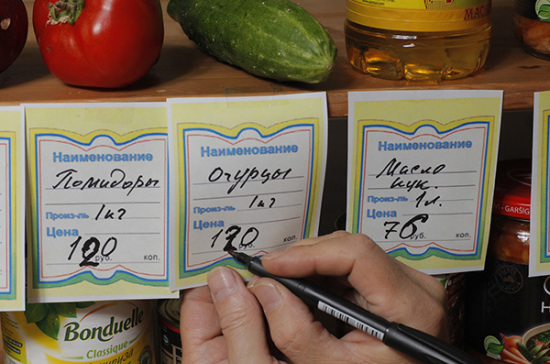 МАС
Наименование
Помидоры
Произ-ль 1кг
Цена
120 руб. коп.
Наименование
Огурцы
Произ-ль 1кг
Цена
120 руб.
Наименование
Масло
кук.
Произ-ль 1л.
Цена
76 руб. коп.
Bonduelle
Classique
GARSIG